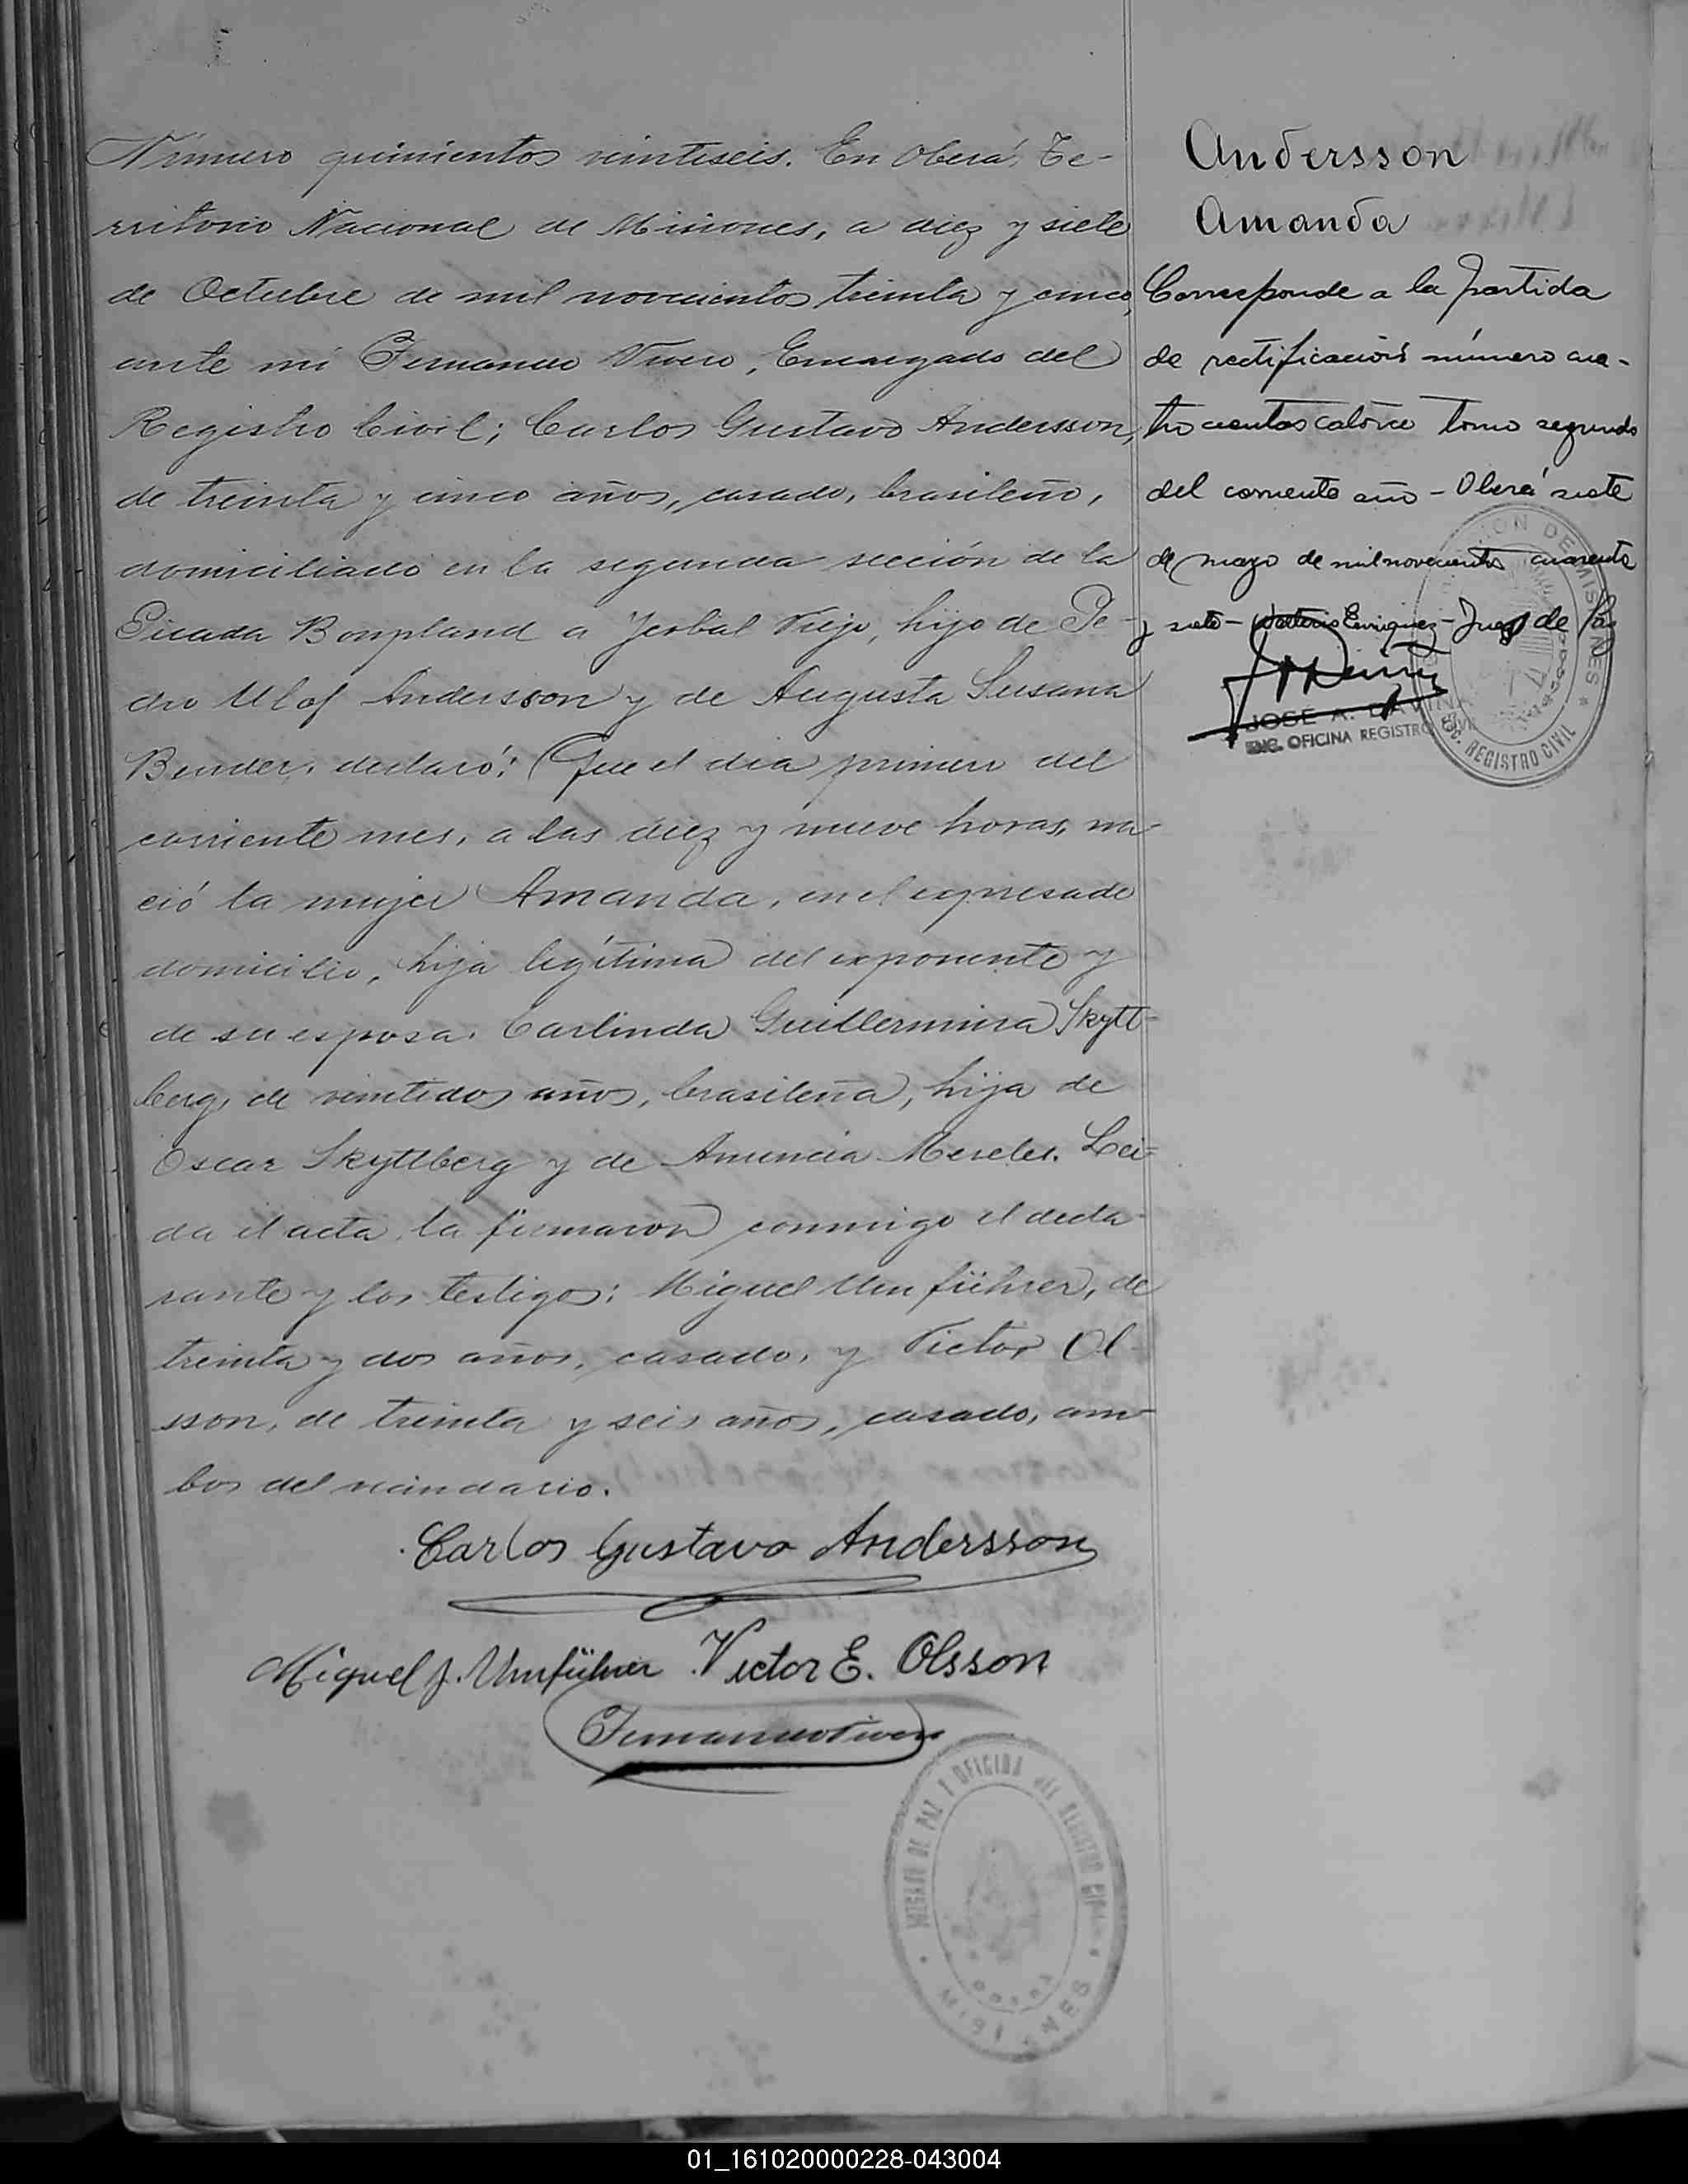 Número quinientos veintiseis. En Oberá, Te-
rritorio Nacional de Misiones, a diez y siete
de Octubre de mil novecientos treinta y cinco,
ante mi Fernando Vivero, Encargado del
Registro Civil; Carlos Gustavo Andersson,
de treinta y cinco años, casado, brasileño,
domiciliado en la segunda sección de la
Picada Bonpland a Yerbal Viejo, hijo de Pe-
dro Ulof Andersson y de Augusta Susana
Bender, declaró: Que el dia primero del
corriente mes, a las diez y nueve horas, na-
ció la mujer Amanda, en el expresado
domicilio, hija legítima del exponente y
de su esposa. Carlinda Guillermina Skytt-
berg, de veintidos años, brasileña, hija de
Oscar Skyttberg y de Anuncia Mereles. Lei-
da el acta, la firmaron conmigo el decla-
rante y los testigos: Miguel Umführer, de
treinta y dos años, casado, y Victor Ol-
sson, de treinta y seis años, casado, am-
bos del vecindario.
Carlos Gustavo Andersson
Miguel J. Umführer Victor E. Olsson
JUZGADO DE PAZ Y OFICINA DEL REGISTRO CIVIL
MISIONES
Andersson
Amanda
Corresponde a la partida
de rectificación número cua-
trocientos catorce tomo segundo
del corriente año - Oberá siete
de mayo de mil novecientos cuarenta
y siete - Enriquez - Juez de Paz
JOSE A. DAVIÑA
ENC. OFICINA REGISTRO CIVIL
MISIONES
REGISTRO CIVIL
01_161020000228-043004